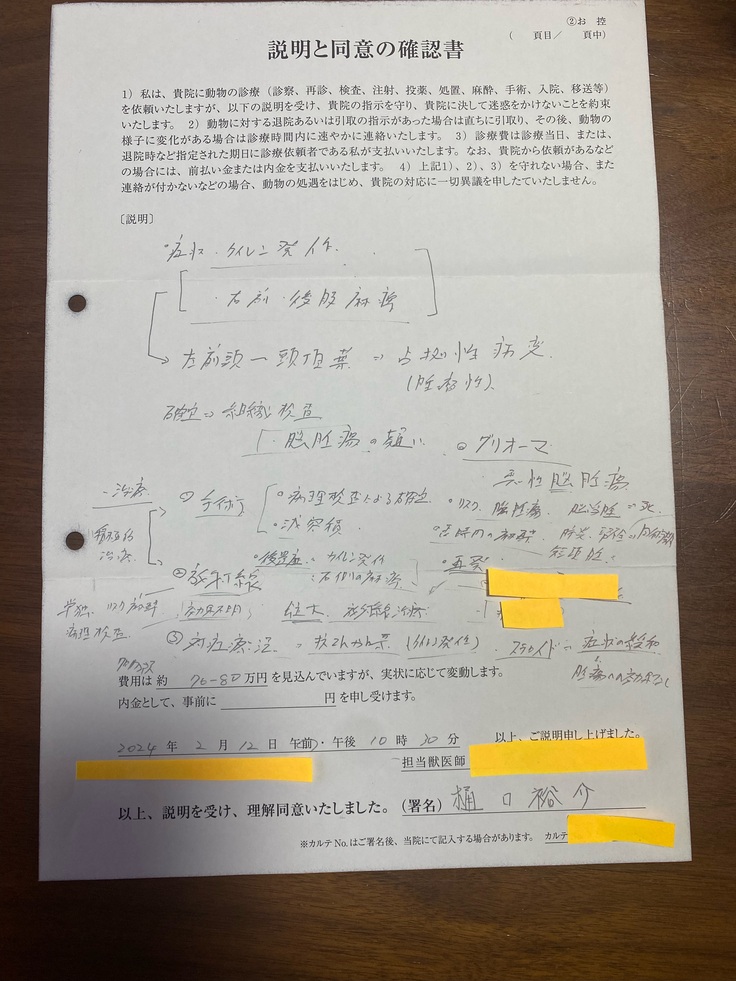 ②お 控
( 頁目/ 頁中)
説明と同意の確認書
1) 私は、貴院に動物の診療(診察、再診、検査、注射、投薬、処置、麻酔、手術、入院、移送等)
を依頼いたしますが、以下の説明を受け、貴院の指示を守り、貴院に決して迷惑をかけないことを約束
いたします。 2) 動物に対する退院あるいは引取の指示があった場合は直ちに引取り、その後、動物の
様子に変化がある場合は診療時間内に速やかに連絡いたします。 3) 診療費は診療当日、または、
退院時など指定された期日に診療依頼者である私が支払いいたします。なお、貴院から依頼があるなど
の場合には、前払い金または内金を支払いいたします。 4) 上記1)、2)、3) を守れない場合、また
連絡が付かないなどの場合、動物の処遇をはじめ、貴院の対応に一切異議を申したていたしません。
〔説明〕
・症状・ケイレン発作
・右前・後肢麻痺
左前頭ー頭頂葉 ⇒ 占拠性病変
(腫瘍性)
確定⇒組織検査
・脳腫瘍の疑い
○グリオーマ
悪性脳腫瘍
・治療
① 手術
○病理検査による確定
・減容積
・リスク 脳腫瘍
積極的
治療
・後遺症
ケイレン発作
右側の麻痺
・再発
② 放射線
単独
病理検査
効果不明
放射線治療
③ 対症療法 = 抗てんかん薬 (ケイレン発作) ステロイド = 症状の緩和
費用は 約 70-80 万円を見込んでいますが、実状に応じて変動します。
内金として、事前に 円を申し受けます。
2024 年 2 月 12 日 午前・午後 10 時 30 分
以上、ご説明申し上げました。
担当獣医師
以上、説明を受け、理解同意いたしました。(署名) 樋口裕介
※カルテNo.はご署名後、当院にて記入する場合があります。 カルテ